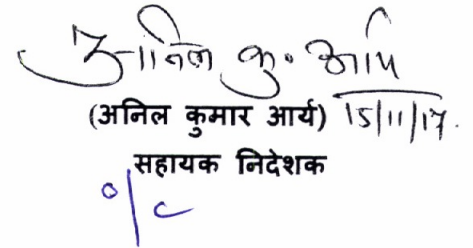 अनिल कु॰ आर्य
(अनिल कुमार आर्य) 15/11/17.
सहायक निदेशक
o/c